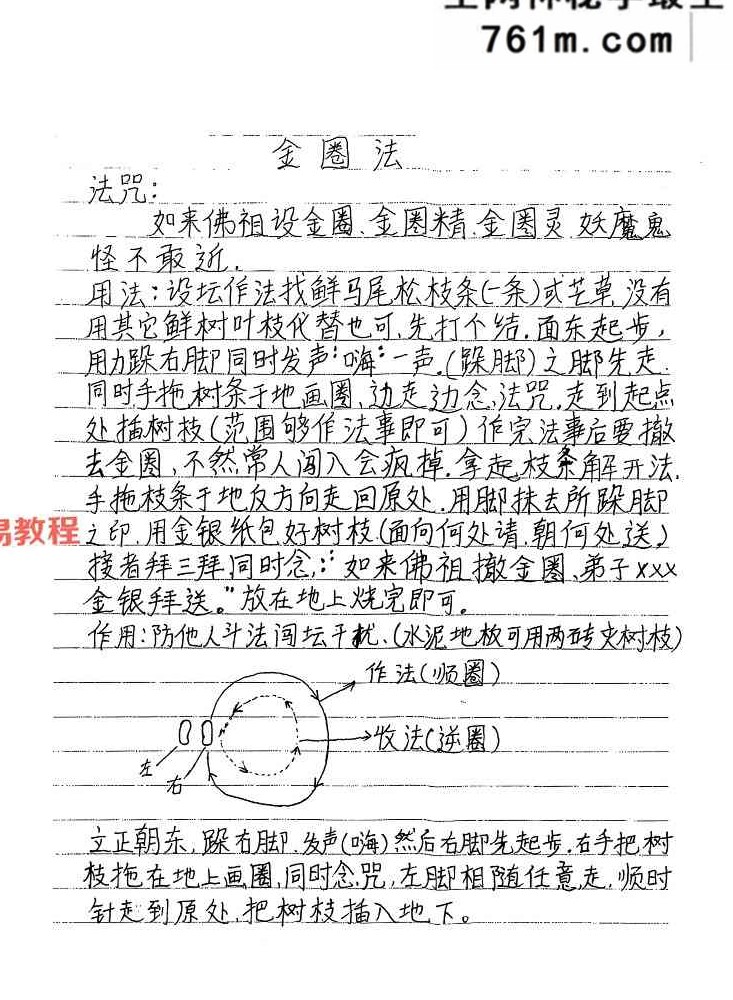 761m.com
金圈法
法咒：
如来佛祖设金圈、金圈精、金圈灵 妖魔鬼
怪不敢近.
用法：设坛作法找鲜马尾松枝条(一条)或芒草.没有
用其它鲜树叶枝代替也可、先打个结.面东起步，
用力跺右脚同时发声：嗨：一声.(跺脚)之脚先走.
同时手拖树条于地画圈、边走边念、法咒.走到起点
处插树枝(范围够作法事即可)作完法事后要撤
去金圈、不然常人闯入会疯掉.拿起枝条解开法.
手拖枝条于地反方向走回原处.用脚抹去所跺脚
之印.用金银纸包好树枝.(面向何处请.朝何处送)
接着拜三拜同时念：“如来佛祖撤金圈、弟子xxx
金银拜送。”放在地上烧完即可。
作用：防他人斗法闯坛干扰、(水泥地板可用两砖夹树枝)
作法(顺圈)
收法(逆圈)
左
右
立正朝东，跺右脚.发声(嗨)然后右脚先起步.右手把树
枝拖在地上画圈，同时念咒，左脚相随任意走，顺时
针走到原处，把树枝插入地下。
易教程